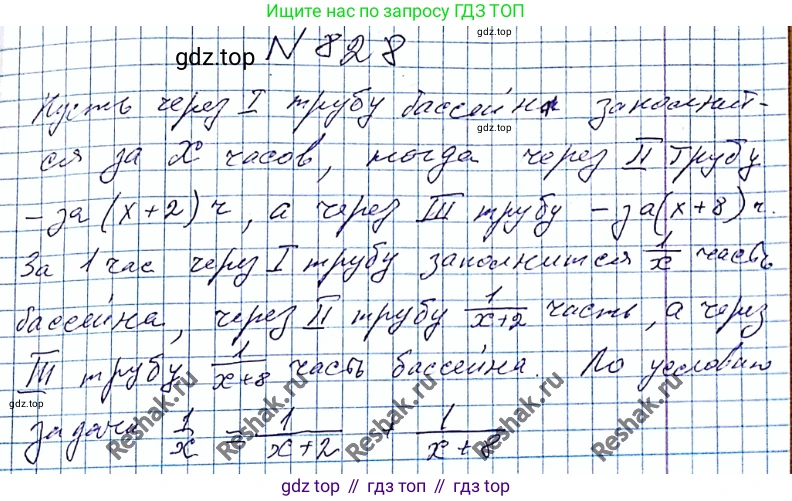 Ищите нас по запросу ГДЗ ТОП
gdz.top N 828
Пусть через I трубу бассейн заполнит-
gdz.top
ся за x часов, тогда через II трубу
- за (x+2) ч, а через III трубу - за (x+8) ч.
За 1 час через I трубу заполнится 1/x часть
бассейна, через II трубу 1/(x+2) часть, а через
III трубу 1/(x+8) часть бассейна. По условию
gdz.top
задачи 1/x = 1/(x+2) + 1/(x+8)
Reshak.ru Reshak.ru Reshak.ru Reshak.ru
gdz.top // гдз.топ // gdz.top